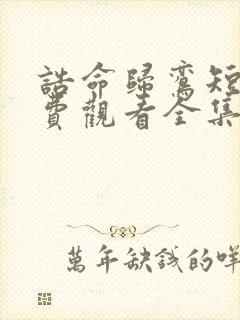 誥命歸鸞短
費觀看全集
萬年缺錢的咩